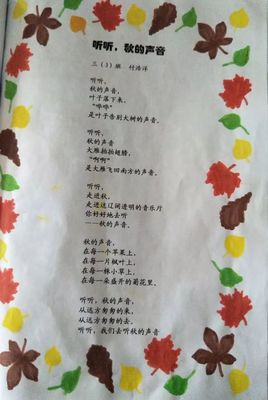 听听，秋的声音
三（3）班 付浩洋
听听，
秋的声音，
叶子落下来，
“哗哗”
是叶子告别大树的声音。
听听，
秋的声音
大雁拍拍翅膀，
“啊啊”
是大雁飞回南方的声音。
听听，
走进秋，
走进这辽阔透明的音乐厅
你好好地去听
——秋的声音。
秋的声音，
在每一个苹果上，
在每一片枫叶上，
在每一株小草上，
在每一朵盛开的菊花里。
听听，秋的声音，
从远方匆匆的来，
从远方匆匆的去。
听听，我们去听秋的声音